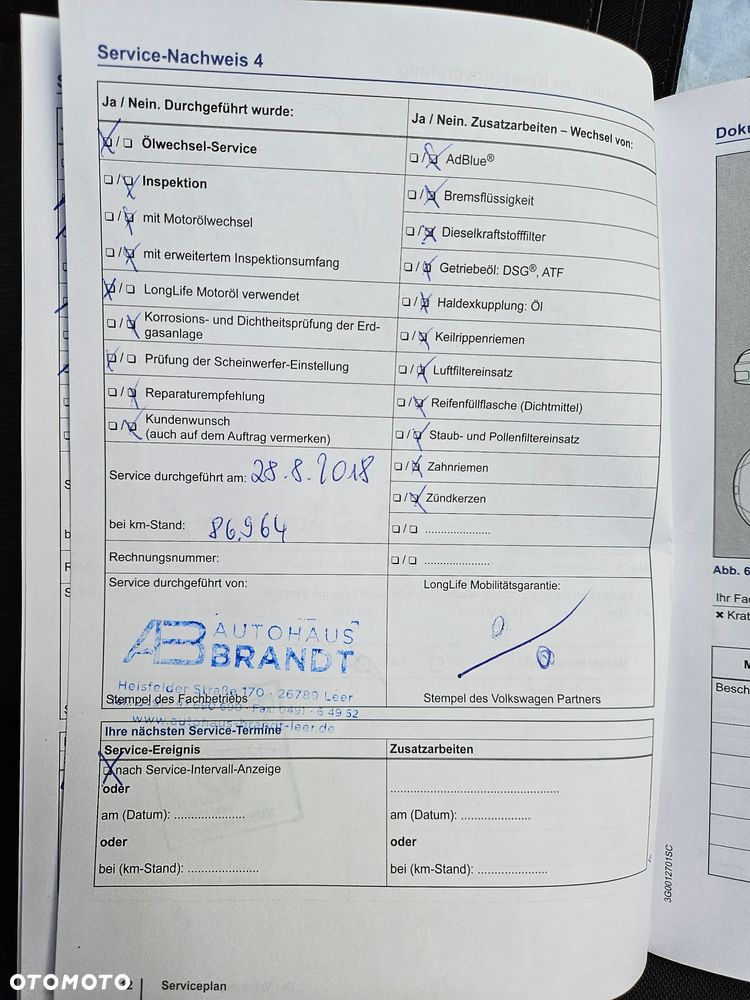 Service-Nachweis 4
Ja / Nein. Durchgeführt wurde:
❏/❏ Ölwechsel-Service
❏/❏ Inspektion
❏/❏ mit Motorölwechsel
❏/❏ mit erweitertem Inspektionsumfang
❏/❏ LongLife Motoröl verwendet
❏/❏ Korrosions- und Dichtheitsprüfung der Erd-
gasanlage
❏/❏ Prüfung der Scheinwerfer-Einstellung
❏/❏ Reparaturempfehlung
❏/❏ Kundenwunsch
(auch auf dem Auftrag vermerken)
Service durchgeführt am: 28.8.2018
bei km-Stand: 86.964
Rechnungsnummer:
Service durchgeführt von:
AB AUTOHAUS
BRANDT
Heisfelder Straße 170 · 26789 Leer
Stempel des Fachbetriebs
Fax: 0491 - 6 49 52
www.autohaus-brandt-leer.de
Ja / Nein. Zusatzarbeiten – Wechsel von:
❏/❏ AdBlue®
❏/❏ Bremsflüssigkeit
❏/❏ Dieselkraftstofffilter
❏/❏ Getriebeöl: DSG®, ATF
❏/❏ Haldexkupplung: Öl
❏/❏ Keilrippenriemen
❏/❏ Luftfiltereinsatz
❏/❏ Reifenfüllflasche (Dichtmittel)
❏/❏ Staub- und Pollenfiltereinsatz
❏/❏ Zahnriemen
❏/❏ Zündkerzen
❏/❏ ...................
❏/❏ ...................
LongLife Mobilitätsgarantie:
Stempel des Volkswagen Partners
Ihre nächsten Service-Termine
Service-Ereignis
❏ nach Service-Intervall-Anzeige
oder
am (Datum): .....................
oder
bei (km-Stand): .....................
Zusatzarbeiten
..................................................
am (Datum): .....................
oder
bei (km-Stand): .....................
Serviceplan
3G0012701SC
Doku
Abb. 6
Ihr Fa
× Krat
M
Besch
OTOMOTO